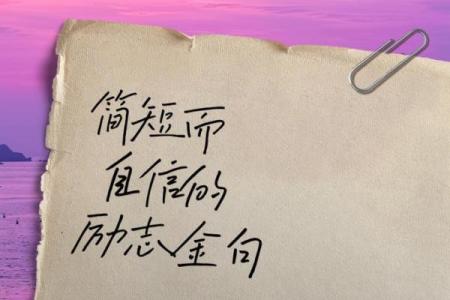 简短而
自信的
励志金句